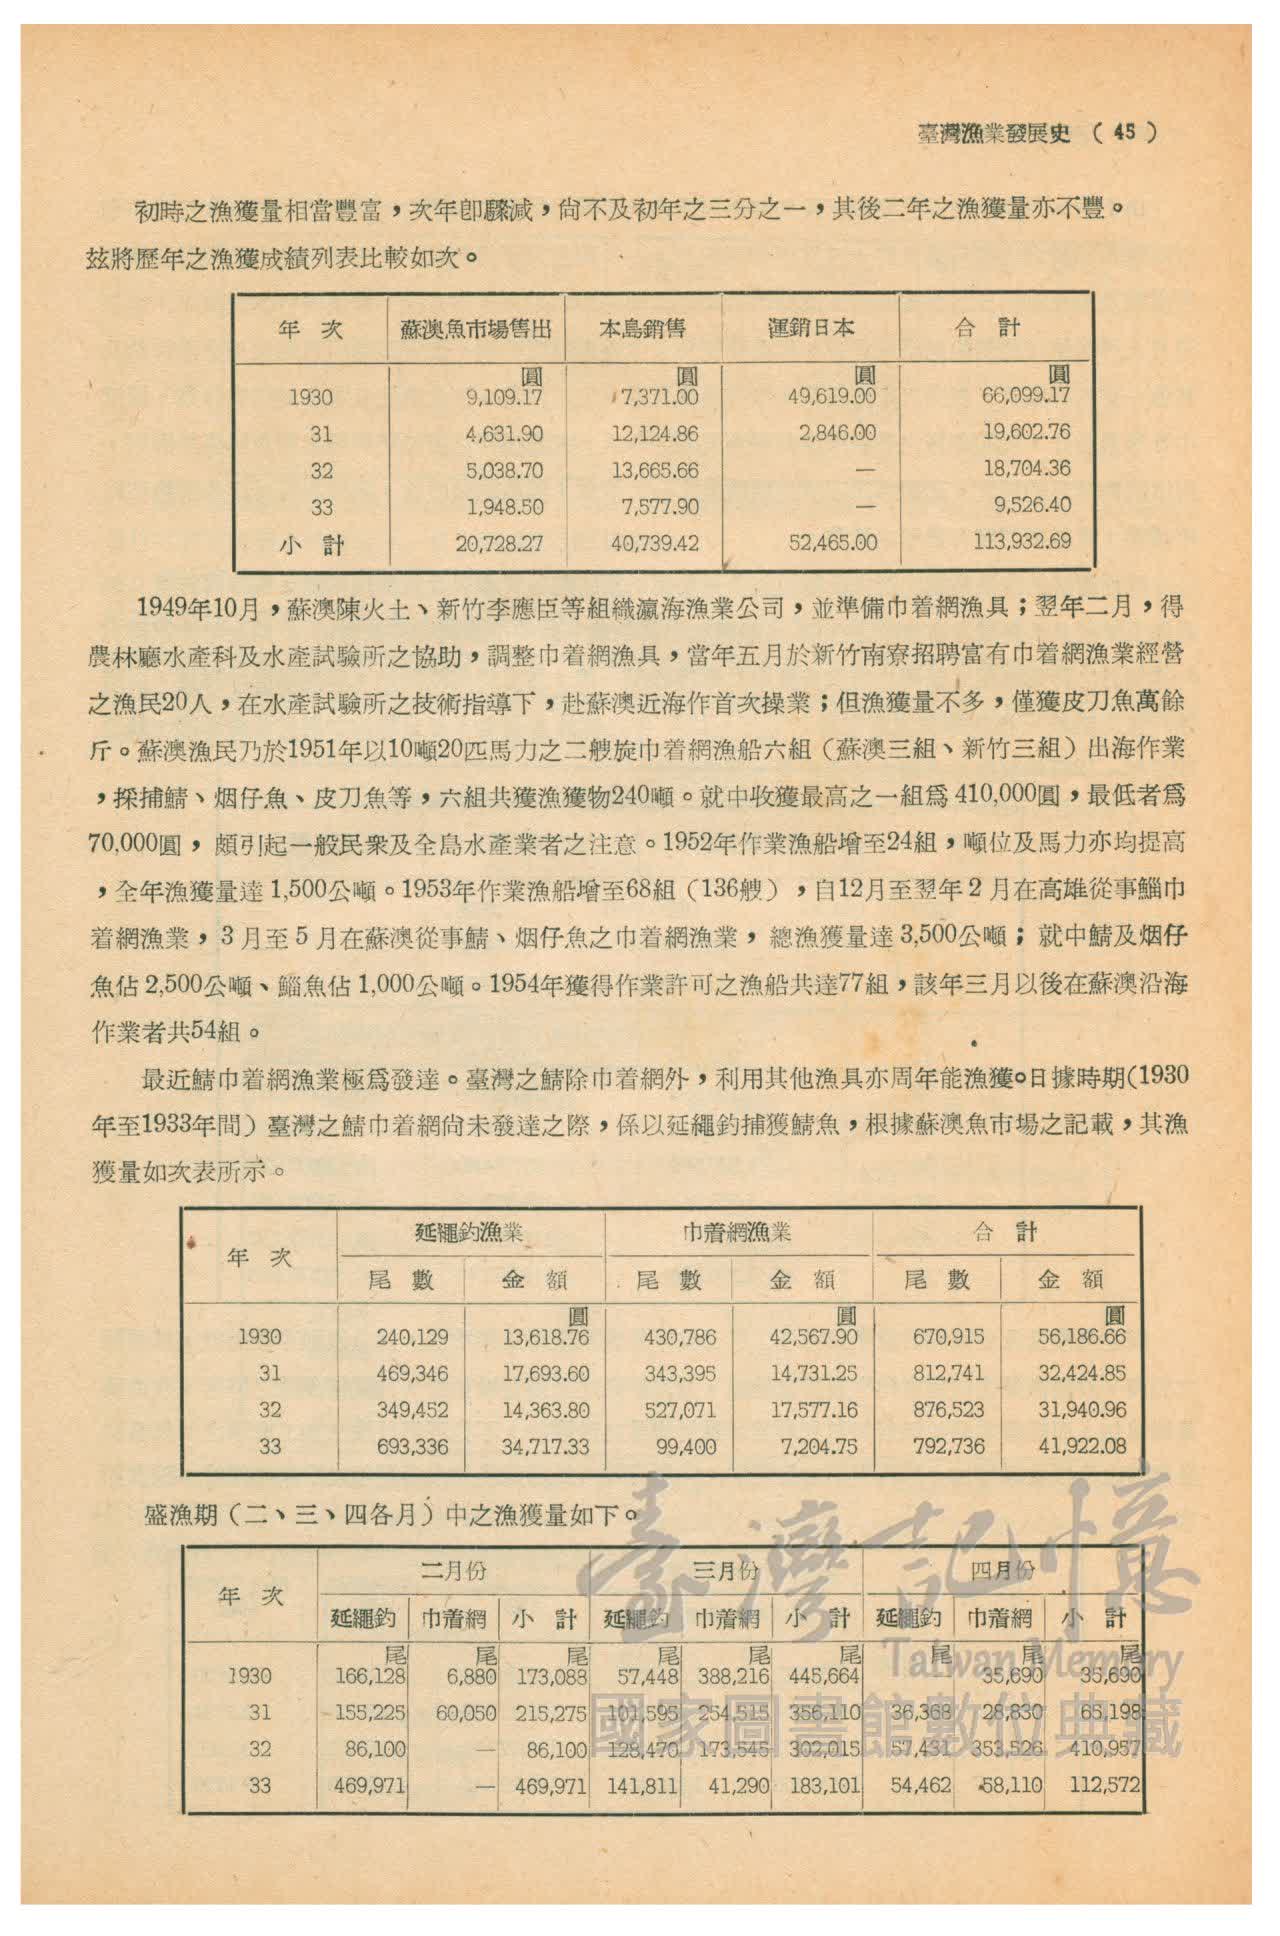 臺灣漁業發展史 (45)
初時之漁獲量相當豐富，次年卽驟減，尙不及初年之三分之一，其後二年之漁獲量亦不豐。
玆將歷年之漁獲成績列表比較如次。
年 次 蘇澳魚市場售出 本島銷售 運銷日本 合 計
圓 圓 圓 圓
1930 9,109.17 7,371.00 49,619.00 66,099.17
31 4,631.90 12,124.86 2,846.00 19,602.76
32 5,038.70 13,665.66 — 18,704.36
33 1,948.50 7,577.90 — 9,526.40
小 計 20,728.27 40,739.42 52,465.00 113,932.69
1949年10月，蘇澳陳火土、新竹李應臣等組織瀛海漁業公司，並準備巾着網漁具；翌年二月，得
農林廳水產科及水產試驗所之協助，調整巾着網漁具，當年五月於新竹南寮招聘富有巾着網漁業經營
之漁民20人，在水產試驗所之技術指導下，赴蘇澳近海作首次操業；但漁獲量不多，僅獲皮刀魚萬餘
斤。蘇澳漁民乃於1951年以10噸20匹馬力之二艘旋巾着網漁船六組（蘇澳三組、新竹三組）出海作業
，採捕鯖、烟仔魚、皮刀魚等，六組共獲漁獲物240噸。就中收獲最高之一組爲 410,000圓，最低者爲
70,000圓， 頗引起一般民衆及全島水產業者之注意。1952年作業漁船增至24組，噸位及馬力亦均提高
，全年漁獲量達 1,500公噸。1953年作業漁船增至68組（136艘），自12月至翌年 2 月在高雄從事鯔巾
着網漁業， 3 月至 5 月在蘇澳從事鯖、烟仔魚之巾着網漁業， 總漁獲量達 3,500公噸； 就中鯖及烟仔
魚佔 2,500公噸、鯔魚佔 1,000公噸。1954年獲得作業許可之漁船共達77組，該年三月以後在蘇澳沿海
作業者共54組。
最近鯖巾着網漁業極爲發達。臺灣之鯖除巾着網外，利用其他漁具亦周年能漁獲。日據時期(1930
年至1933年間）臺灣之鯖巾着網尙未發達之際，係以延繩釣捕獲鯖魚，根據蘇澳魚市場之記載，其漁
獲量如次表所示。
年 次 延繩釣漁業 巾着網漁業 合 計
尾 數 金 額 尾 數 金 額 尾 數 金 額
圓 圓 圓
1930 240,129 13,618.76 430,786 42,567.90 670,915 56,186.66
31 469,346 17,693.60 343,395 14,731.25 812,741 32,424.85
32 349,452 14,363.80 527,071 17,577.16 876,523 31,940.96
33 693,336 34,717.33 99,400 7,204.75 792,736 41,922.08
盛漁期（二、三、四各月）中之漁獲量如下。
年 次 二月份 三月份 四月份
延繩釣 巾着網 小 計 延繩釣 巾着網 小 計 延繩釣 巾着網 小 計
尾 尾 尾 尾 尾 尾 尾 尾 尾
1930 166,128 6,880 173,088 57,448 388,216 445,664 35,690 35,690
31 155,225 60,050 215,275 101,595 254,515 356,110 36,368 28,830 65,198
32 86,100 — 86,100 128,470 173,545 302,015 57,431 353,526 410,957
33 469,971 — 469,971 141,811 41,290 183,101 54,462 58,110 112,572
臺灣記憶
Taiwan Memory
國家圖書館數位典藏